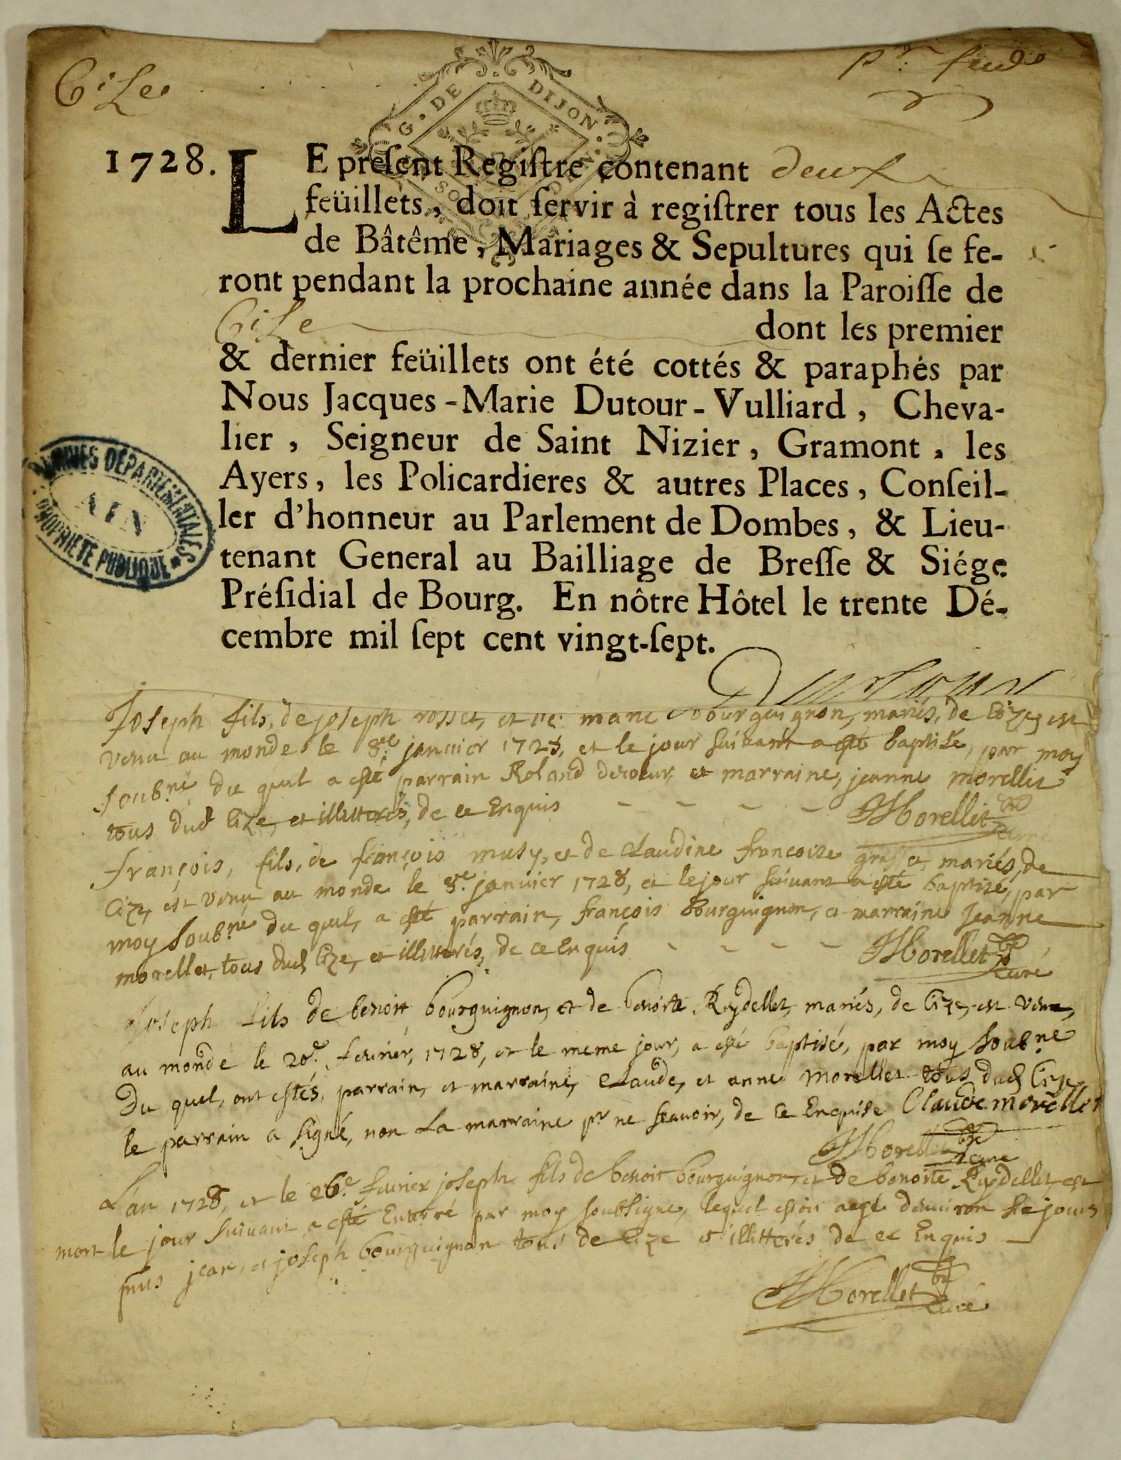 CiZe
pr. feuil.
G. DE DIJON.
1728. LE preſent Regiſtre contenant deux
feüillets, doit ſervir à regiſtrer tous les Actes
de Bâtême, Mariages & Sepultures qui ſe fe-
ront pendant la prochaine année dans la Paroiſſe de
CiZe dont les premier
& dernier feüillets ont été cottés & paraphés par
Nous Jacques-Marie Dutour-Vulliard, Cheva-
lier, Seigneur de Saint Nizier, Gramont, les
Ayers, les Policardieres & autres Places, Conſeil-
ler d'honneur au Parlement de Dombes, & Lieu-
tenant General au Bailliage de Breſſe & Siége
Préſidial de Bourg. En nôtre Hôtel le trente Dé-
cembre mil ſept cent vingt-ſept.
ARCHIVES DÉPARTEMENTALES
AIN
PROPRIÉTÉ PUBLIQUE
Dutour
Joseph fils, de joseph rosset, et de marie bourguignon, mariés, de Cize, est
venu au monde le 8e janvier 1728, et le jour suivant a esté baptisé, par moy
soubné du quel a esté parrain Roland decoeur, et marraine, jeanne morellet
tous dud Cize, et illitterés, de ce Enquis
HMorellet curé
françois, fils, de françois musy, et de claudine françoise mariés, de
Cize, est venu au monde le 8e janvier 1728, et le jour suivant a esté baptisé, par
moy soubné du quel, a esté parrain, françois Bourguignon, et marraine Jeanne
morellet, tous dud Cize, et illitterés, de ce Enquis
HMorellet curé
Joseph fils de benoit bourguignon, et de benoite Reydellet, mariés, de Cize, est venu,
au monde le 20e fevrier, 1728, et le meme jour, a esté baptisé, par moy soubné
Du quel, ont estés, parrain, et marraine, Claude, et anne morellet tous dud Cize,
le parrain a signé, non La marraine pr ne sçavoir, de ce Enquise Claude morellet
HMorellet curé
L'an 1728, et le 26e fevrier joseph fils de benoit bourguignon, et de benoite Reydellet est
mort le jour suivant a esté Enterré par moy soubsigné, lequel estoit agé denviron six jours
pnts jean, et joseph bourguignon tous de Cize et illitterés de ce Enquis
HMorellet curé